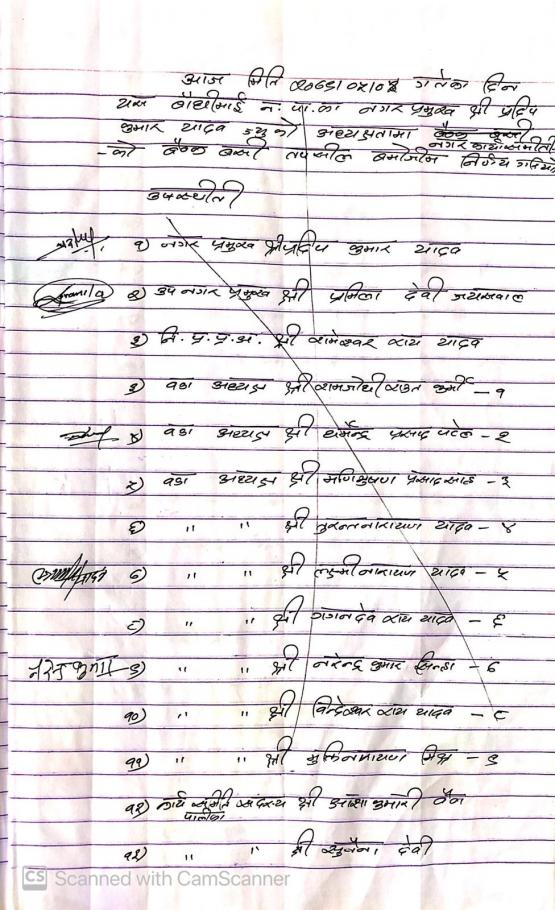 आज मिति २०७९।०४।०४ गतेका दिन
यस बौधीमाई न. पा.का नगर प्रमुख श्री प्रदिप
कुमार यादव ज्यु को अध्यक्षतामा
नगर कार्यसमिती
-को बैठक बसी तपसील बमोजीम निर्णय गरियो
उपस्थीती
१) नगर प्रमुख श्री प्रदिप कुमार यादव
२) उप नगर प्रमुख श्री प्रमिला देवी जयसवाल
३) नि. प्र. प्र. अ. श्री रामेश्वर राय यादव
३) वडा अध्यक्ष श्री रामजोधी राउत कुर्मी - १
४) वडा अध्यक्ष श्री धर्मेन्द्र प्रसाद पटेल - २
५) वडा अध्यक्ष श्री मणिभुषण प्रसाद साह - ३
६) " " श्री नारायण यादव - ४
७) " " श्री लक्ष्मी नारायण यादव - ५
८) " " श्री गगनदेव राय यादव - ६
नरेन्द्र कुमार ९) " " श्री नरेन्द्र कुमार सिन्हा - ७
१०) " " श्री विन्देश्वर राय यादव - ८
११) " " श्री मुक्तिनारायण मिश्र - ९
१२) कार्य समिति सदस्य श्री आशा कुमारी
पालिका
१३) " " श्री देवी
CS Scanned with CamScanner